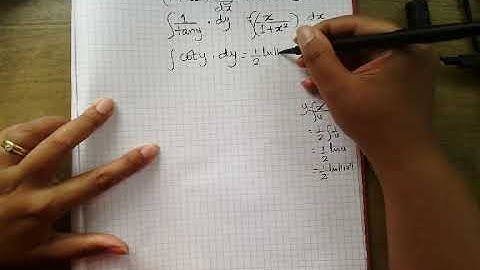 dx
∫ 1/tany · dy = ∫ x/1+x² dx
∫ coty · dy = 1/2 ln
= 1/2 ∫
= 1/2 ln u
= 1/2 ln